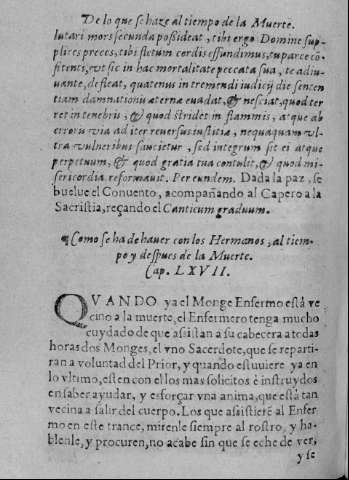 De lo que se haze al tiempo de la Muerte.
lutari mors secunda poßideat, tibi ergo Domine sup-
plices preces, tibi fletum cordis effundimus, tu parce cō
fitenti, vt sic in hac mortalitate peccata sua, te adiu-
uante, defleat, quatenus in tremendi iudicij die senten
tiam damnationis æterna euadat, & nesciat, quod ter
ret in tenebris, & quod stridet in flammis, atque ab
erroris via ad iter reuersus iustitiæ, nequaquam vl-
tra vulneribus saucietur, sed integrum sit ei atque
perpetuum, & quod gratia tua contulit, & quod mi-
sericordia reformauit. Per eundem. Dada la paz, se
buelue el Conuento, acompañando al Capero a la
Sacristia, reçando el Canticum graduum.
Como se ha de hauer con los Hermanos, al tiem-
po y despues de la Muerte.
Cap. LXVII.
QVANDO ya el Monge Enfermo está ve
cino a la muerte, el Enfermero tenga mucho
cuydado de que assistan a su cabecera a todas
horas dos Monges, el vno Sacerdote, que se reparti-
ran a voluntad del Prior, y quando estuuiere ya en
lo vltimo, esten con el los mas solicitos è instruydos
en saber ayudar, y esforçar vna anima, que está tan
vecina a salir del cuerpo. Los que assistierē al Enfer
mo en este trance, mirenle siempre al rostro, y ha-
blenle, y procuren, no acabe sin que se eche de ver,
y se